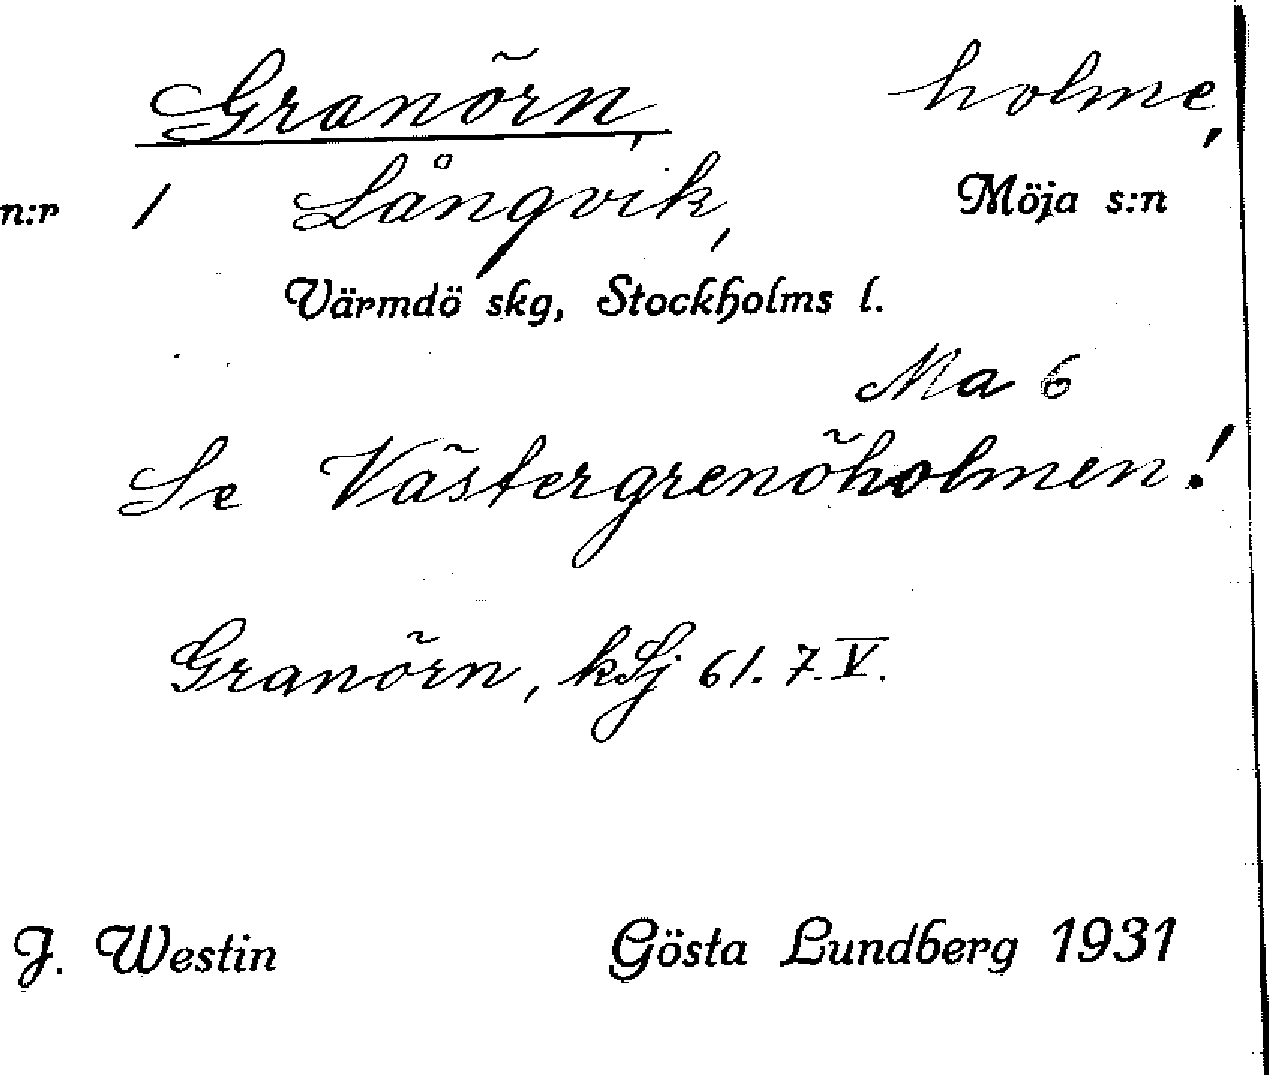 Granörn, holme,
n:r 1 Långvik, Möja s:n
Värmdö skg, Stockholms l.
Ma 6
Se Västergrenöholmen!
Granörn, kSj 61. 7. V.
J. Westin Gösta Lundberg 1931